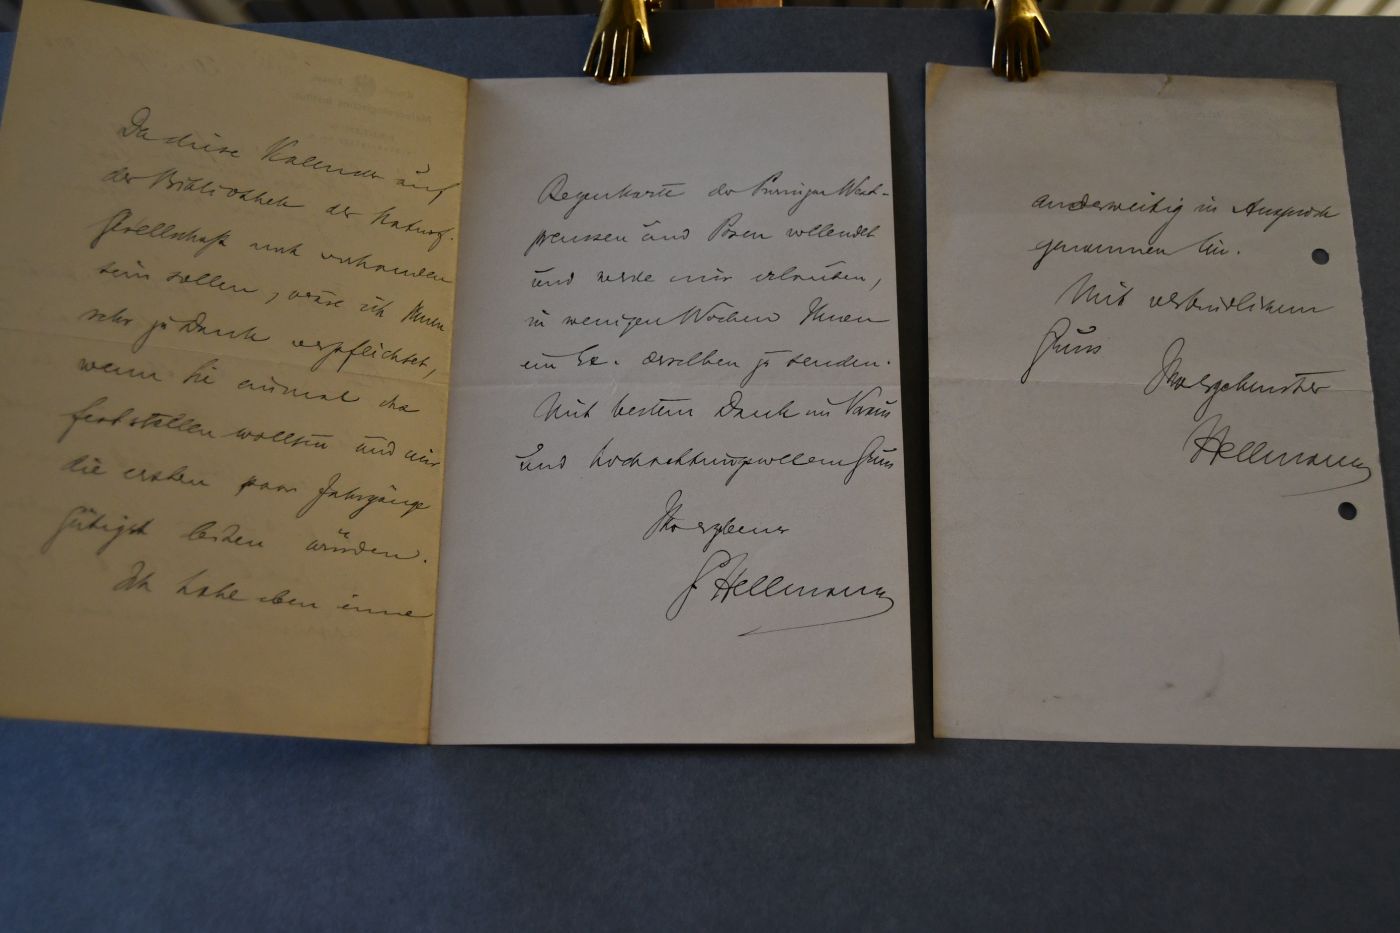 Da diese Kalender auf
der Bibliothek der Naturf.
Gesellschaft noch vorhanden
sein sollen, wäre ich Ihnen
sehr zu Dank verpflichtet,
wenn Sie einmal das
feststellen wollten und mir
die ersten paar Jahrgänge
gütigst leihen würden.
Ich habe eben eine
Regenkarte der Provinzen West-
preussen und Posen vollendet
und werde mir erlauben,
in wenigen Wochen Ihnen
ein Ex. derselben zu senden.
Mit bestem Dank im Voraus
und hochachtungsvollem Gruss
Ihr ergebener
G Hellmann
anderweitig in Anspruch
genommen bin.
Mit verbindlichem
Gruss
Ihr ergebenster
Hellmann